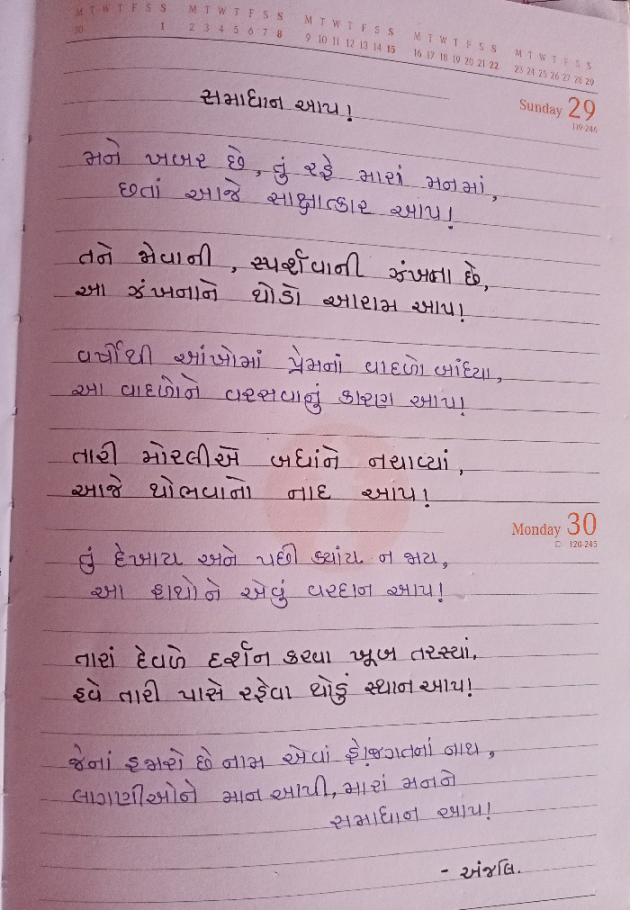 M T W T F S S M T W T F S S M T W T F S S M T W T F S S M T W T F S S
30 1 2 3 4 5 6 7 8 9 10 11 12 13 14 15 16 17 18 19 20 21 22 23 24 25 26 27 28 29
Sunday 29
119-246
સમાધાન આપ!
મને ખબર છે, તું રહે મારાં મનમાં,
છતાં આજે સાક્ષાત્કાર આપ!
તને જોવાની, સ્પર્શવાની ઝંખના છે,
આ ઝંખનાને થોડો આરામ આપ!
વર્ષોથી આંખોમાં પ્રેમનાં વાદળો બાંધ્યા,
આ વાદળોને વરસવાનું કારણ આપ!
તારી મોરલીએ બધાંને નચાવ્યાં,
આજે થોભવાનો નાદ આપ!
Monday 30
120-245
તું દેખાય અને પછી ક્યાંય ન જાય,
આ હાથોને એવું વરદાન આપ!
તારાં દેવળે દર્શન કરવા ખૂબ તરસ્યાં,
હવે તારી પાસે રહેવા થોડું સ્થાન આપ!
જેનાં હજારો છે નામ એવાં હે!જગતનાં નાથ,
લાગણીઓને માન આપી, મારાં મનને
સમાધાન આપ!
- અંજલિ.